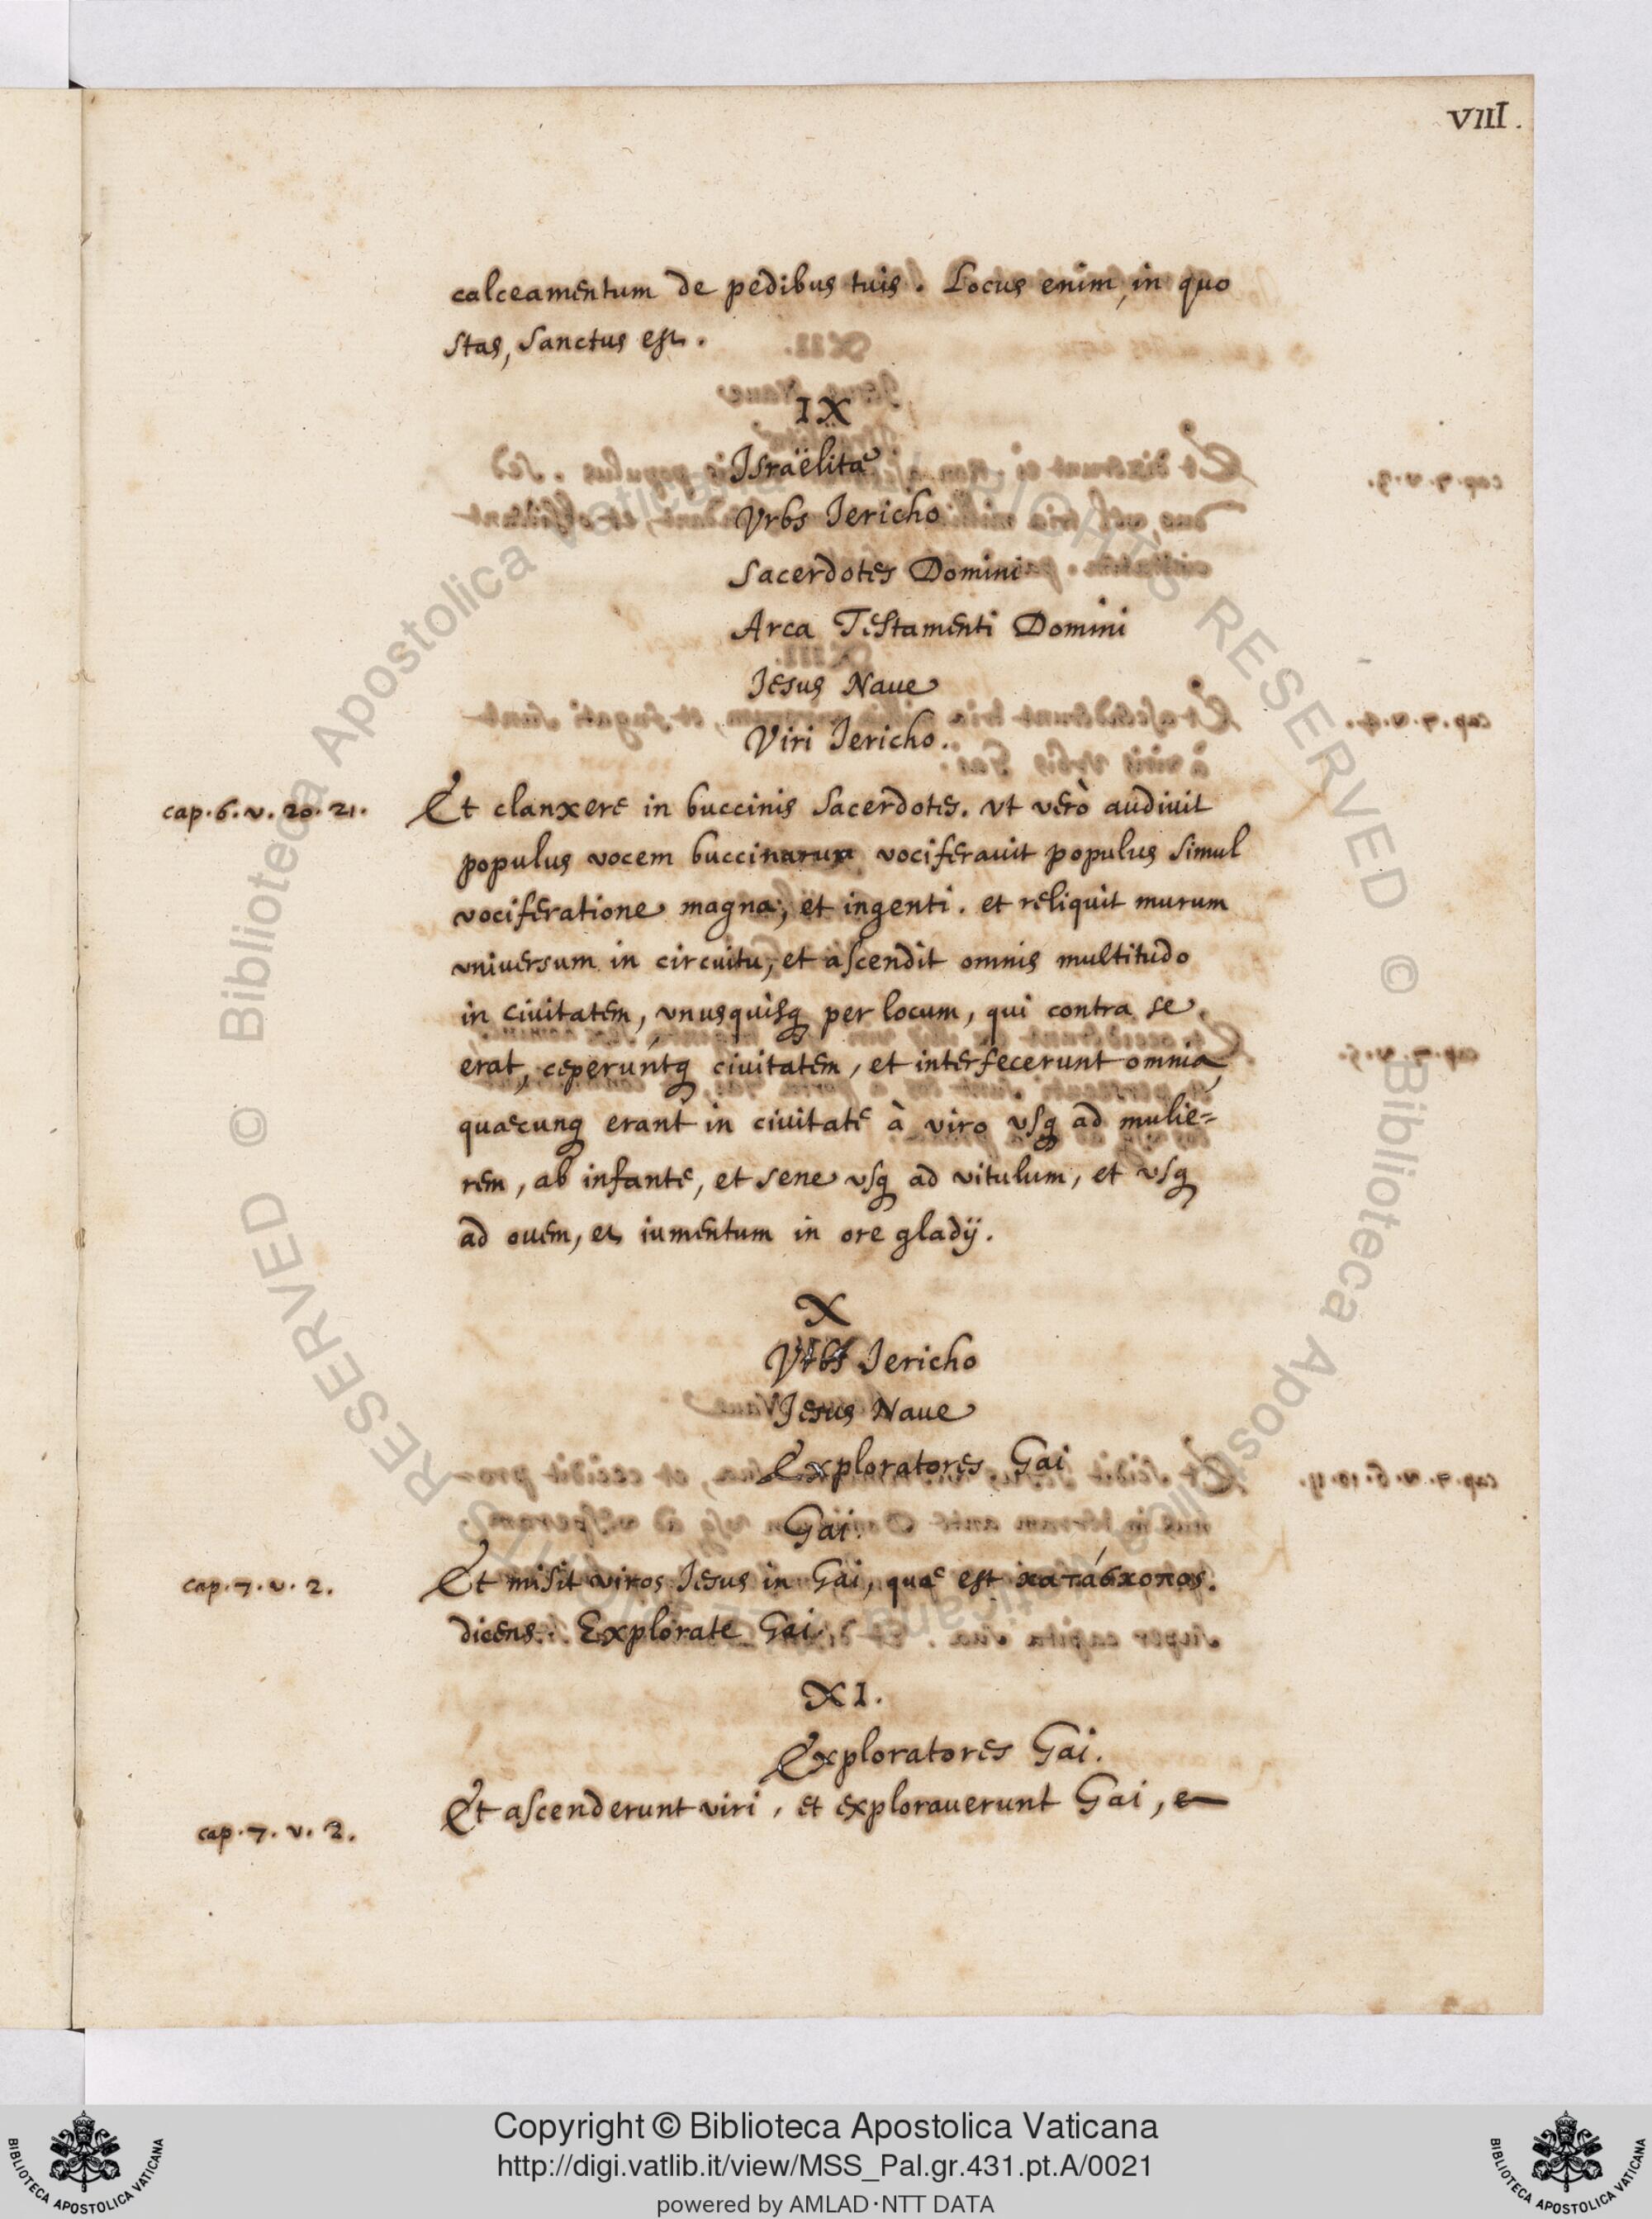 VIII.
calceamentum de pedibus tuis. Locus enim, in quo
stas, sanctus est.
IX
Israëlitæ
Vrbs Jericho
Sacerdotes Domini
Arca Testamenti Domini
Jesus Naue
Viri Jericho.
cap. 6. v. 20. 21.
Et clanxere in buccinis Sacerdotes. vt verò audiuit
populus vocem buccinarum vociferauit populus simul
vociferatione magna, et ingenti. et reliquit murum
vniuersum in circuitu, et ascendit omnis multitudo
in ciuitatem, vnusquisq per locum, qui contra se
erat, ceperuntq́ ciuitatem, et interfecerunt omnia,
quæcunq erant in ciuitate à viro vsq ad mulie=
rem, ab infante, et sene vsq ad vitulum, et vsq
ad ouem, et iumentum in ore gladij.
X
Vrbs Jericho
Jesus Naue
Exploratores Gai
Gai.
cap. 7. v. 2.
Et misit viros Jesus in Gai, quæ est κατάσκοπος.
dicens. Explorate Gai.
XI.
Exploratores Gai.
Et ascenderunt viri, et explorauerunt Gai, e
cap. 7. v. 3.
Copyright © Biblioteca Apostolica Vaticana
http://digi.vatlib.it/view/MSS_Pal.gr.431.pt.A/0021
powered by AMLAD·NTT DATA
BIBLIOTECA APOSTOLICA VATICANA
BIBLIOTECA APOSTOLICA VATICANA